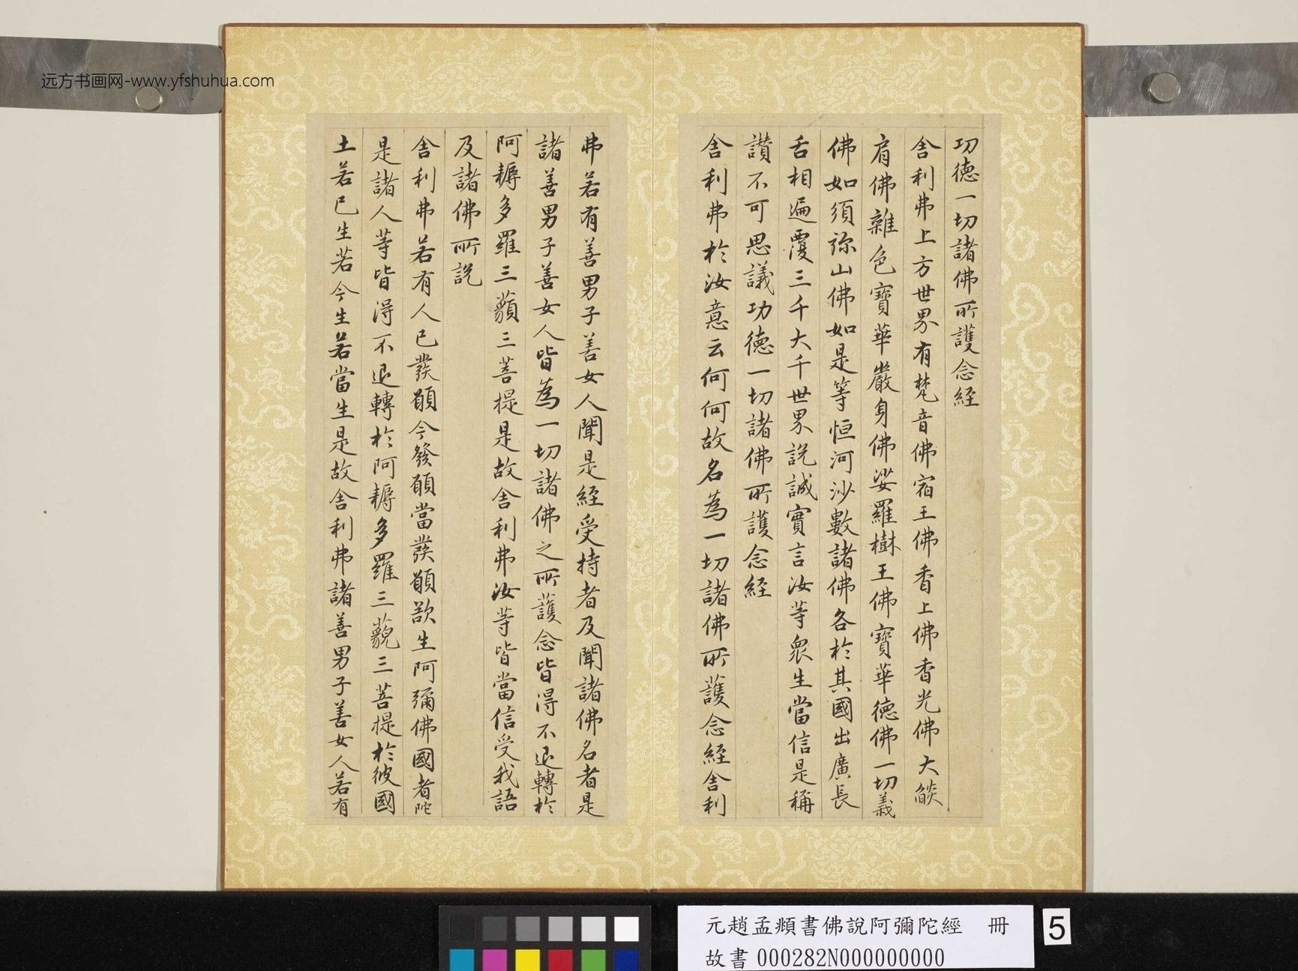 远方书画网-www.yfshuhua.com
功德一切諸佛所護念經
舍利弗上方世界有梵音佛宿王佛香上佛香光佛大燄
肩佛雜色寶華嚴身佛娑羅樹王佛寶華德佛一切義
佛如須弥山佛如是等恒河沙數諸佛各於其國出廣長
舌相遍覆三千大千世界說誠實言汝等衆生當信是稱
讚不可思議功德一切諸佛所護念經
舍利弗於汝意云何何故名為一切諸佛所護念經舍利
弗若有善男子善女人聞是經受持者及聞諸佛名者是
諸善男子善女人皆為一切諸佛之所護念皆得不退轉於
阿耨多羅三藐三菩提是故舍利弗汝等皆當信受我語
及諸佛所說
舍利弗若有人已發願今發願當發願欲生阿彌佛國者陀
是諸人等皆得不退轉於阿耨多羅三藐三菩提於彼國
土若已生若今生若當生是故舍利弗諸善男子善女人若有
元趙孟頫書佛說阿彌陀經 冊
故書 000282N000000000
5